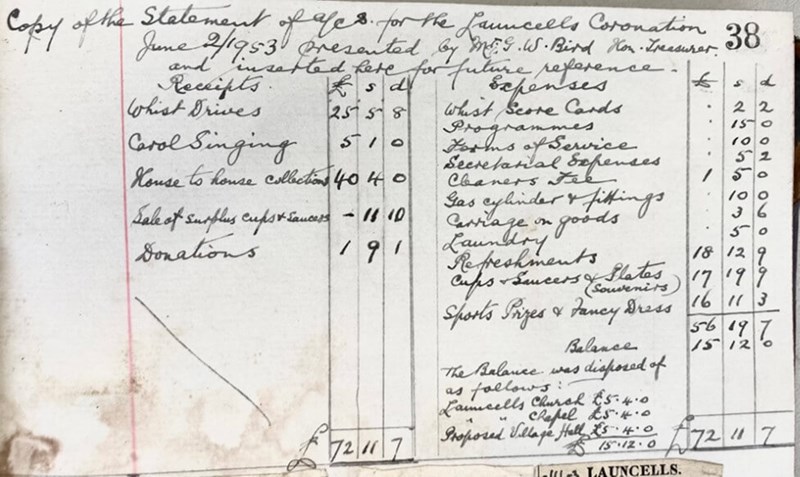 Copy of the Statement of a/cs. for the Launcells Coronation 38
June 2/1953 presented by Mr. G. W. Bird Hon. Treasurer.
and inserted here for future reference.
Receipts. £ s d
Whist Drives 25 5 8
Carol Singing 5 1 0
House to house collections 40 4 0
Sale of surplus cups & saucers - 11 10
Donations 1 9 1
£ 72 11 7
Expenses £ s d
Whist Score Cards . 2 2
Programmes . 15 0
Forms of Service . 10 0
Secretarial Expenses . 5 2
Cleaners Fee 1 5 0
Gas cylinder & fittings . 10 0
Carriage on goods . 3 6
Laundry . 5 0
Refreshments 18 12 9
Cups & Saucers & Plates 17 19 9
(Souvenirs)
Sports Prizes & Fancy Dress 16 11 3
56 19 7
Balance 15 12 0
The Balance was disposed of
as follows:
Launcells Church £5.4.0
" " Chapel £5.4.0
Proposed Village Hall £5.4.0
£ 15.12.0
£ 72 11 7
LAUNCELLS.